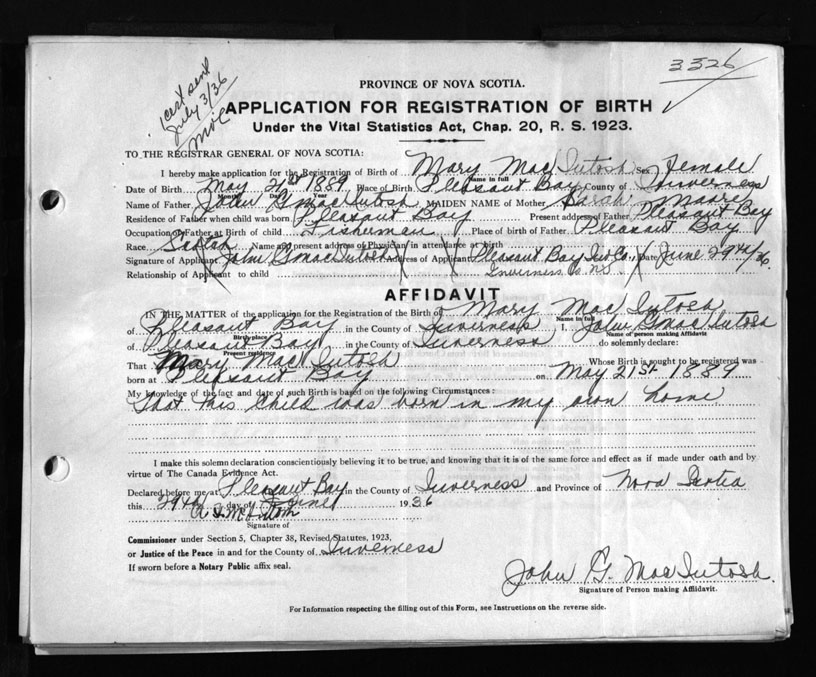 3326
cert sent
July 3/36
PROVINCE OF NOVA SCOTIA.
APPLICATION FOR REGISTRATION OF BIRTH
Under the Vital Statistics Act, Chap. 20, R. S. 1923.
TO THE REGISTRAR GENERAL OF NOVA SCOTIA:
I hereby make application for the Registration of Birth of Mary MacIntosh Sex female
Name in full
Date of Birth May 21st 1889 Place of Birth Pleasant Bay County of Inverness
Month Day Year
Name of Father John G MacIntosh MAIDEN NAME of Mother Sarah Moore
Residence of Father when child was born Pleasant Bay Present address of Father Pleasant Bay
Occupation of Father at Birth of child Fisherman Place of birth of Father Pleasant Bay
Race Name and present address of Physician in attendance at birth
Signature of Applicant John G MacIntosh Address of Applicant Pleasant Bay Inv Co., Date June 29th/36.
Relationship of Applicant to child Inverness Co. N.S.
AFFIDAVIT
IN THE MATTER of the application for the Registration of the Birth of Mary MacIntosh
Name in full
of Pleasant Bay in the County of Inverness, I, John G MacIntosh
Birth place Name of person making Affidavit
of Pleasant Bay in the County of Inverness do solemnly declare:
Present residence
That Mary MacIntosh Whose Birth is sought to be registered was
born at Pleasant Bay on May 21st 1889
My knowledge of the fact and date of such Birth is based on the following Circumstances:
That this child was born in my own home
I make this solemn declaration conscientiously believing it to be true, and knowing that it is of the same force and effect as if made under oath and by
virtue of The Canada Evidence Act.
Declared before me at Pleasant Bay in the County of Inverness and Province of Nova Scotia
this 29th day of June 1936
Signature of
Commissioner under Section 5, Chapter 38, Revised Statutes, 1923,
or Justice of the Peace in and for the County of Inverness
If sworn before a Notary Public affix seal.
John G. MacIntosh.
Signature of Person making Affidavit.
For Information respecting the filling out of this Form, see Instructions on the reverse side.